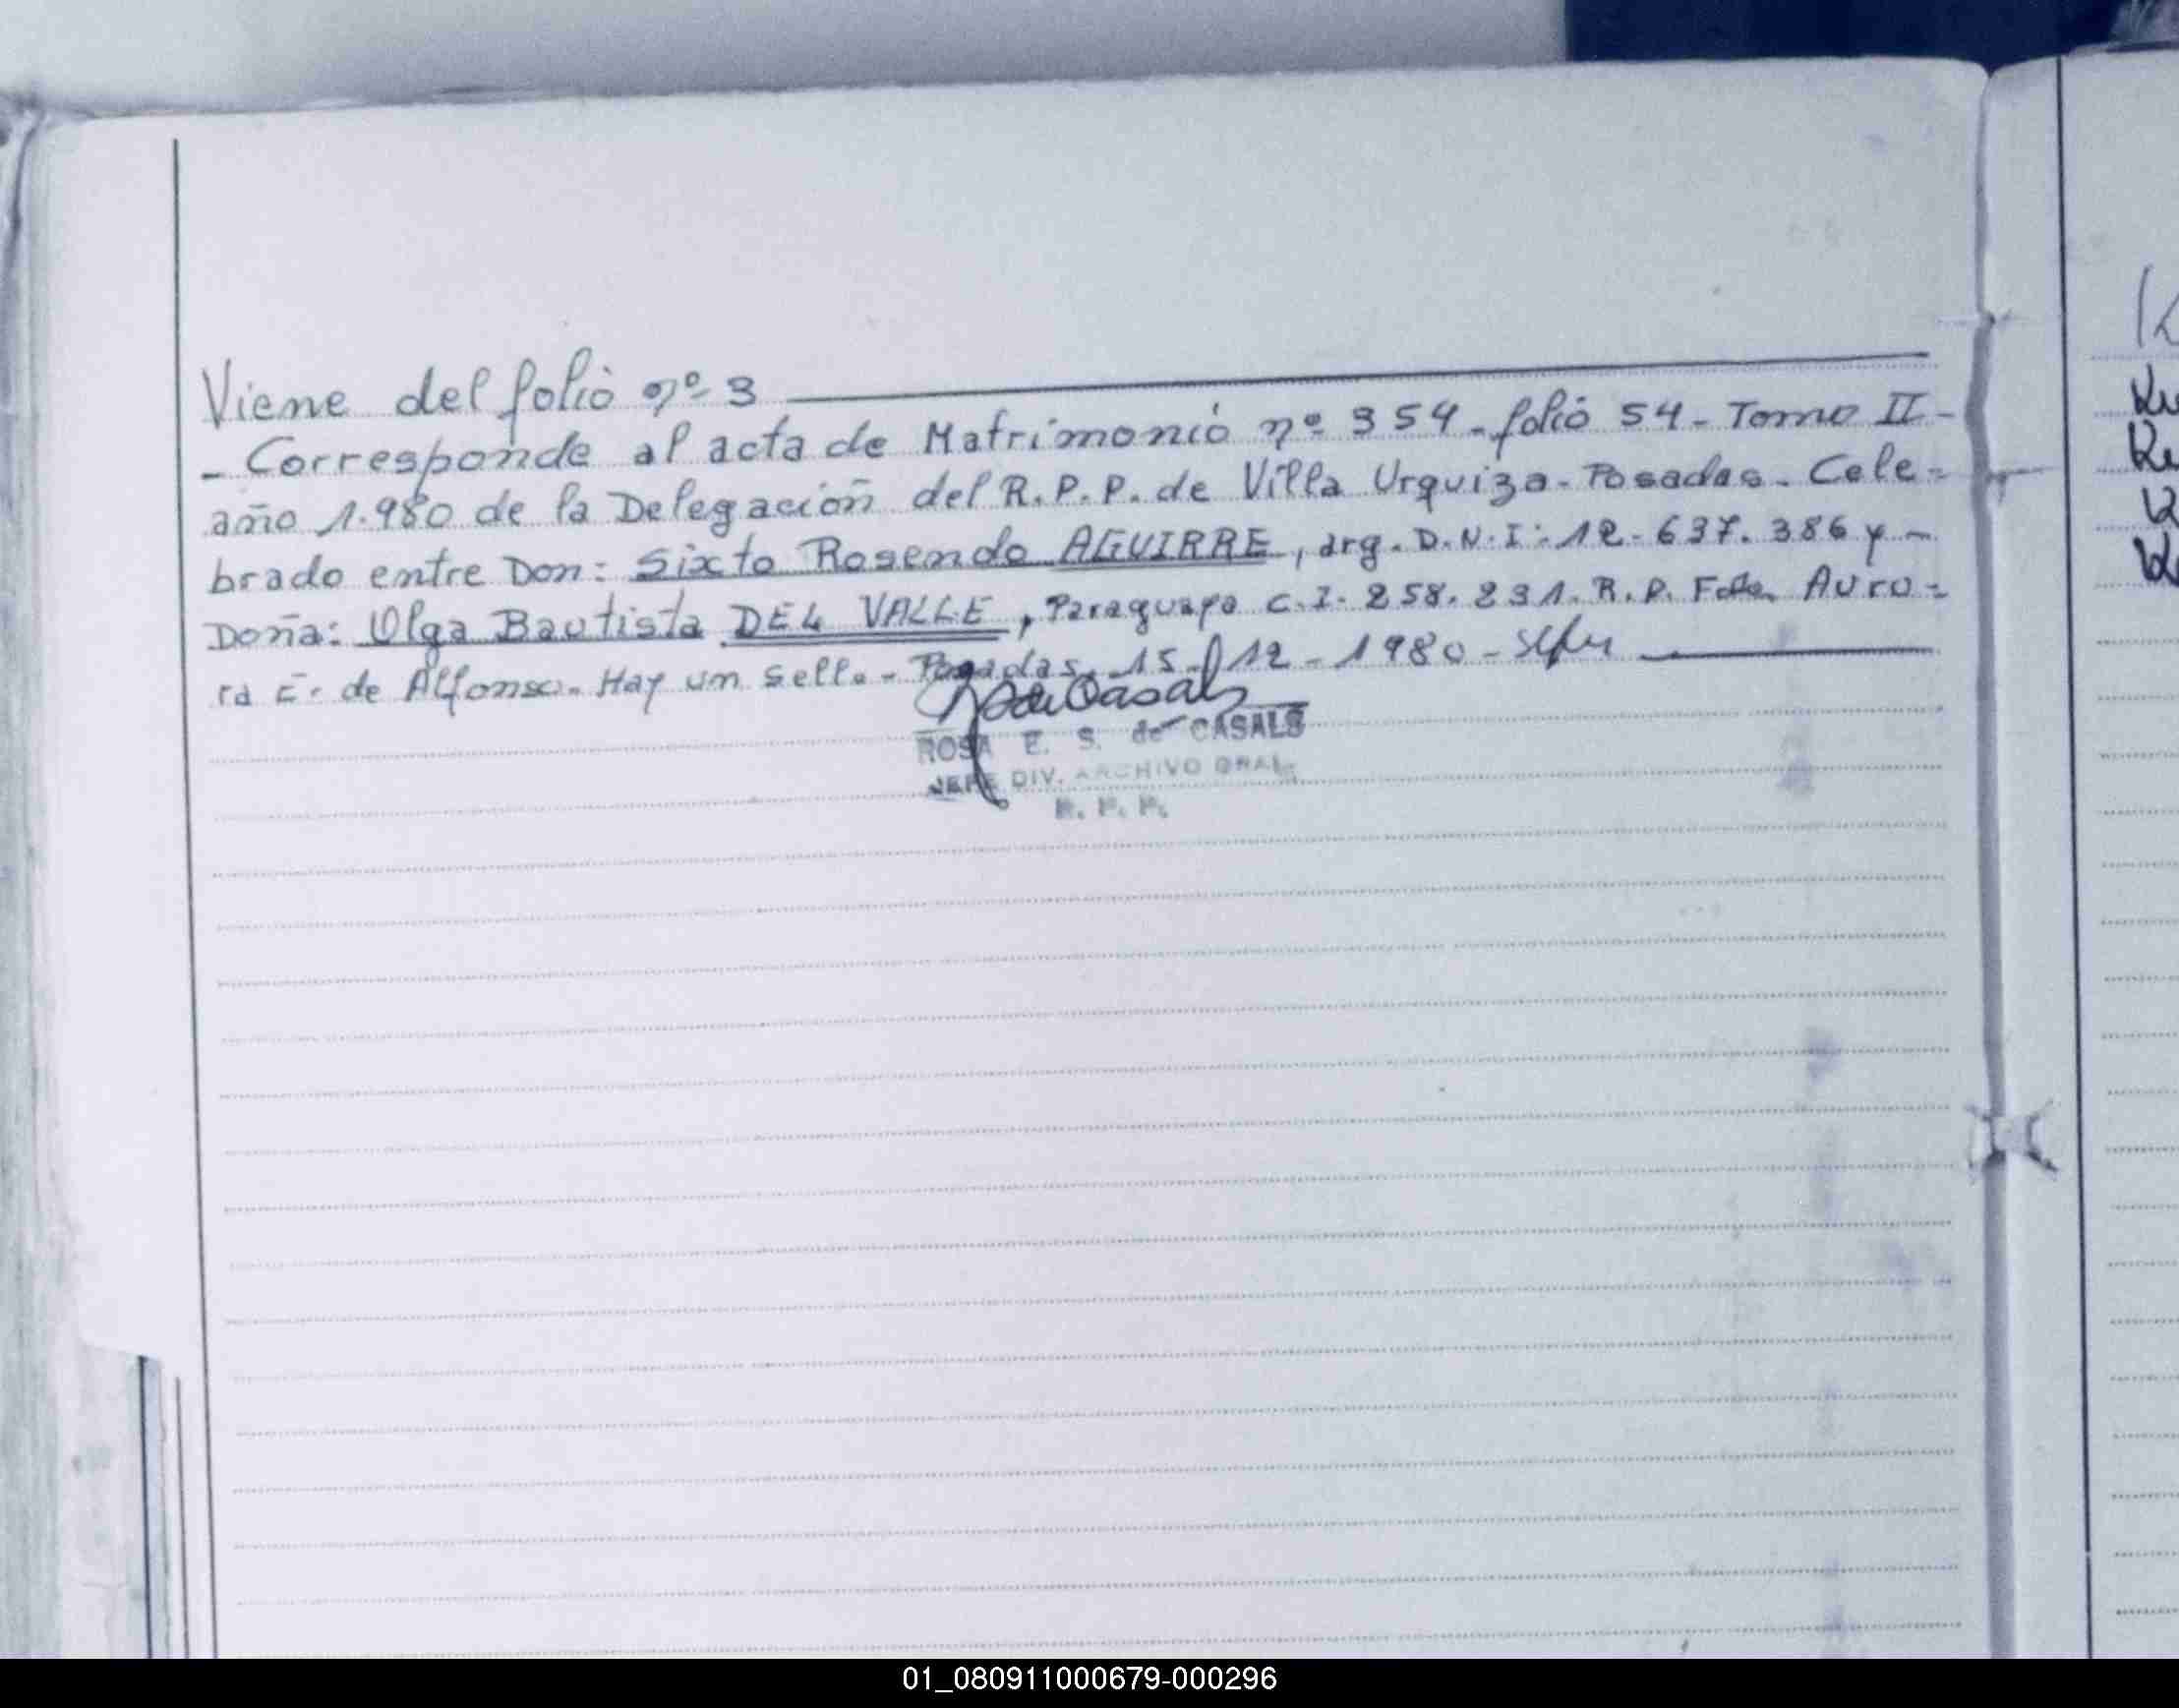 Viene del folio nº 3
- Corresponde al acta de Matrimonio nº 354 - folio 54 - Tomo II -
año 1.980 de la Delegación del R.P.P. de Villa Urquiza - Posadas - Cele=
brado entre Don: Sixto Rosendo AGUIRRE, arg. D.N.I: 12-637.386 y -
Doña: Olga Bautista DEL VALLE, Paraguaya C.I. 258.231. R.P. Fdo. Auro=
ra E. de Alfonso. Hay un sello - Posadas, 15-12-1980 -
R de Casals
ROSA E. S. de CASALS
JEFE DIV. ARCHIVO GRAL.
R. P. P.
01_080911000679-000296